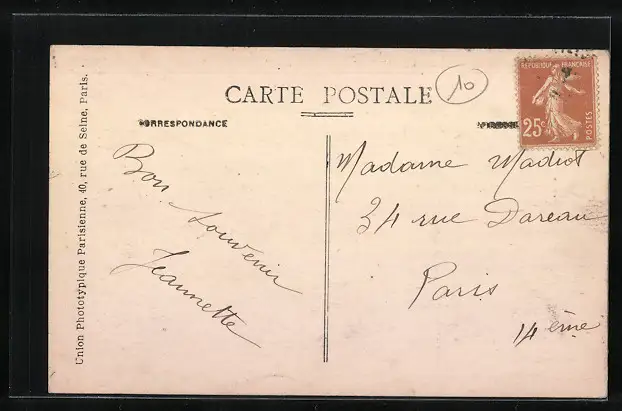 CARTE POSTALE
10
RÉPUBLIQUE FRANÇAISE
25c
POSTES
CORRESPONDANCE
Bon souvenir
Jeannette
Madame Madiot
34 rue Dareau
Paris
14ème
Union Phototypique Parisienne, 40, rue de Seine, Paris.